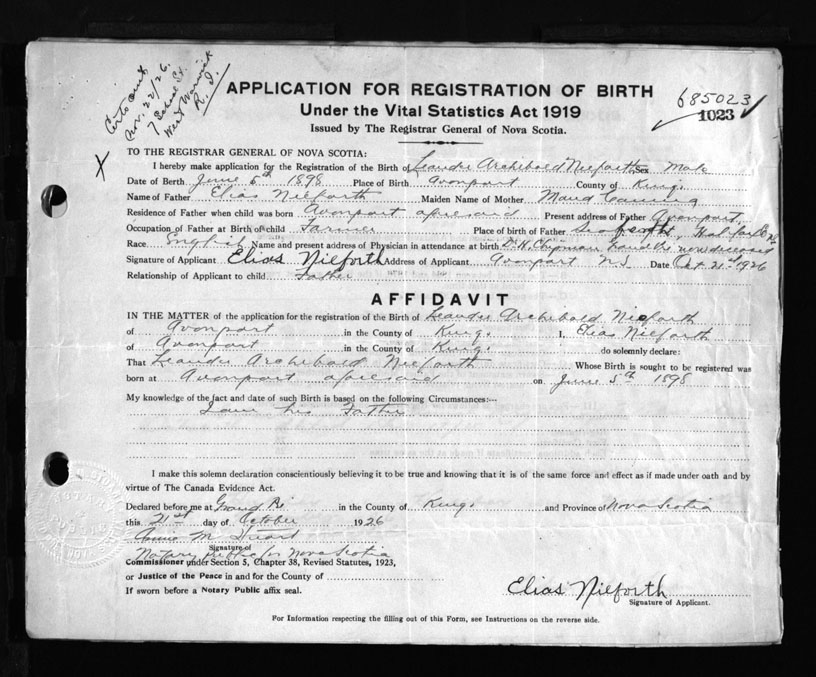 Cert. out
Nov. 22/26.
7 School St.
West Warwick
R. I.
APPLICATION FOR REGISTRATION OF BIRTH
Under the Vital Statistics Act 1919
Issued by The Registrar General of Nova Scotia.
685023
1023
X
TO THE REGISTRAR GENERAL OF NOVA SCOTIA:
I hereby make application for the Registration of the Birth of Leander Archibald Nieforth Sex Male
Date of Birth June 5th 1898 Place of Birth Avonport County of Kings
Name of Father Elias Nieforth Maiden Name of Mother Maud Canning
Residence of Father when child was born Avonport aforesaid Present address of Father Avonport,
Occupation of Father at Birth of child Farmer Place of birth of Father Seaforth, Halifax Co
Race English Name and present address of Physician in attendance at birth Chipman now deceased
Signature of Applicant Elias Nieforth Address of Applicant Avonport N.S. Date Oct 21st 1926
Relationship of Applicant to child Father
AFFIDAVIT
IN THE MATTER of the application for the registration of the Birth of Leander Archibald Nieforth
of Avonport in the County of Kings I, Elias Nieforth
of Avonport in the County of Kings do solemnly declare:
That Leander Archibald Nieforth Whose Birth is sought to be registered was
born at Avonport aforesaid on June 5th 1898
My knowledge of the fact and date of such Birth is based on the following Circumstances:—
I am his Father
I make this solemn declaration conscientiously believing it to be true and knowing that it is of the same force and effect as if made under oath and by
virtue of The Canada Evidence Act.
Declared before me at Grand Pré in the County of Kings and Province of Nova Scotia
this 21st day of October 1926
Annie M Stuart
Signature of
Notary Public for Nova Scotia
Commissioner under Section 5, Chapter 38, Revised Statutes, 1923,
or Justice of the Peace in and for the County of
If sworn before a Notary Public affix seal.
Elias Nieforth
Signature of Applicant.
For Information respecting the filling out of this Form, see Instructions on the reverse side.